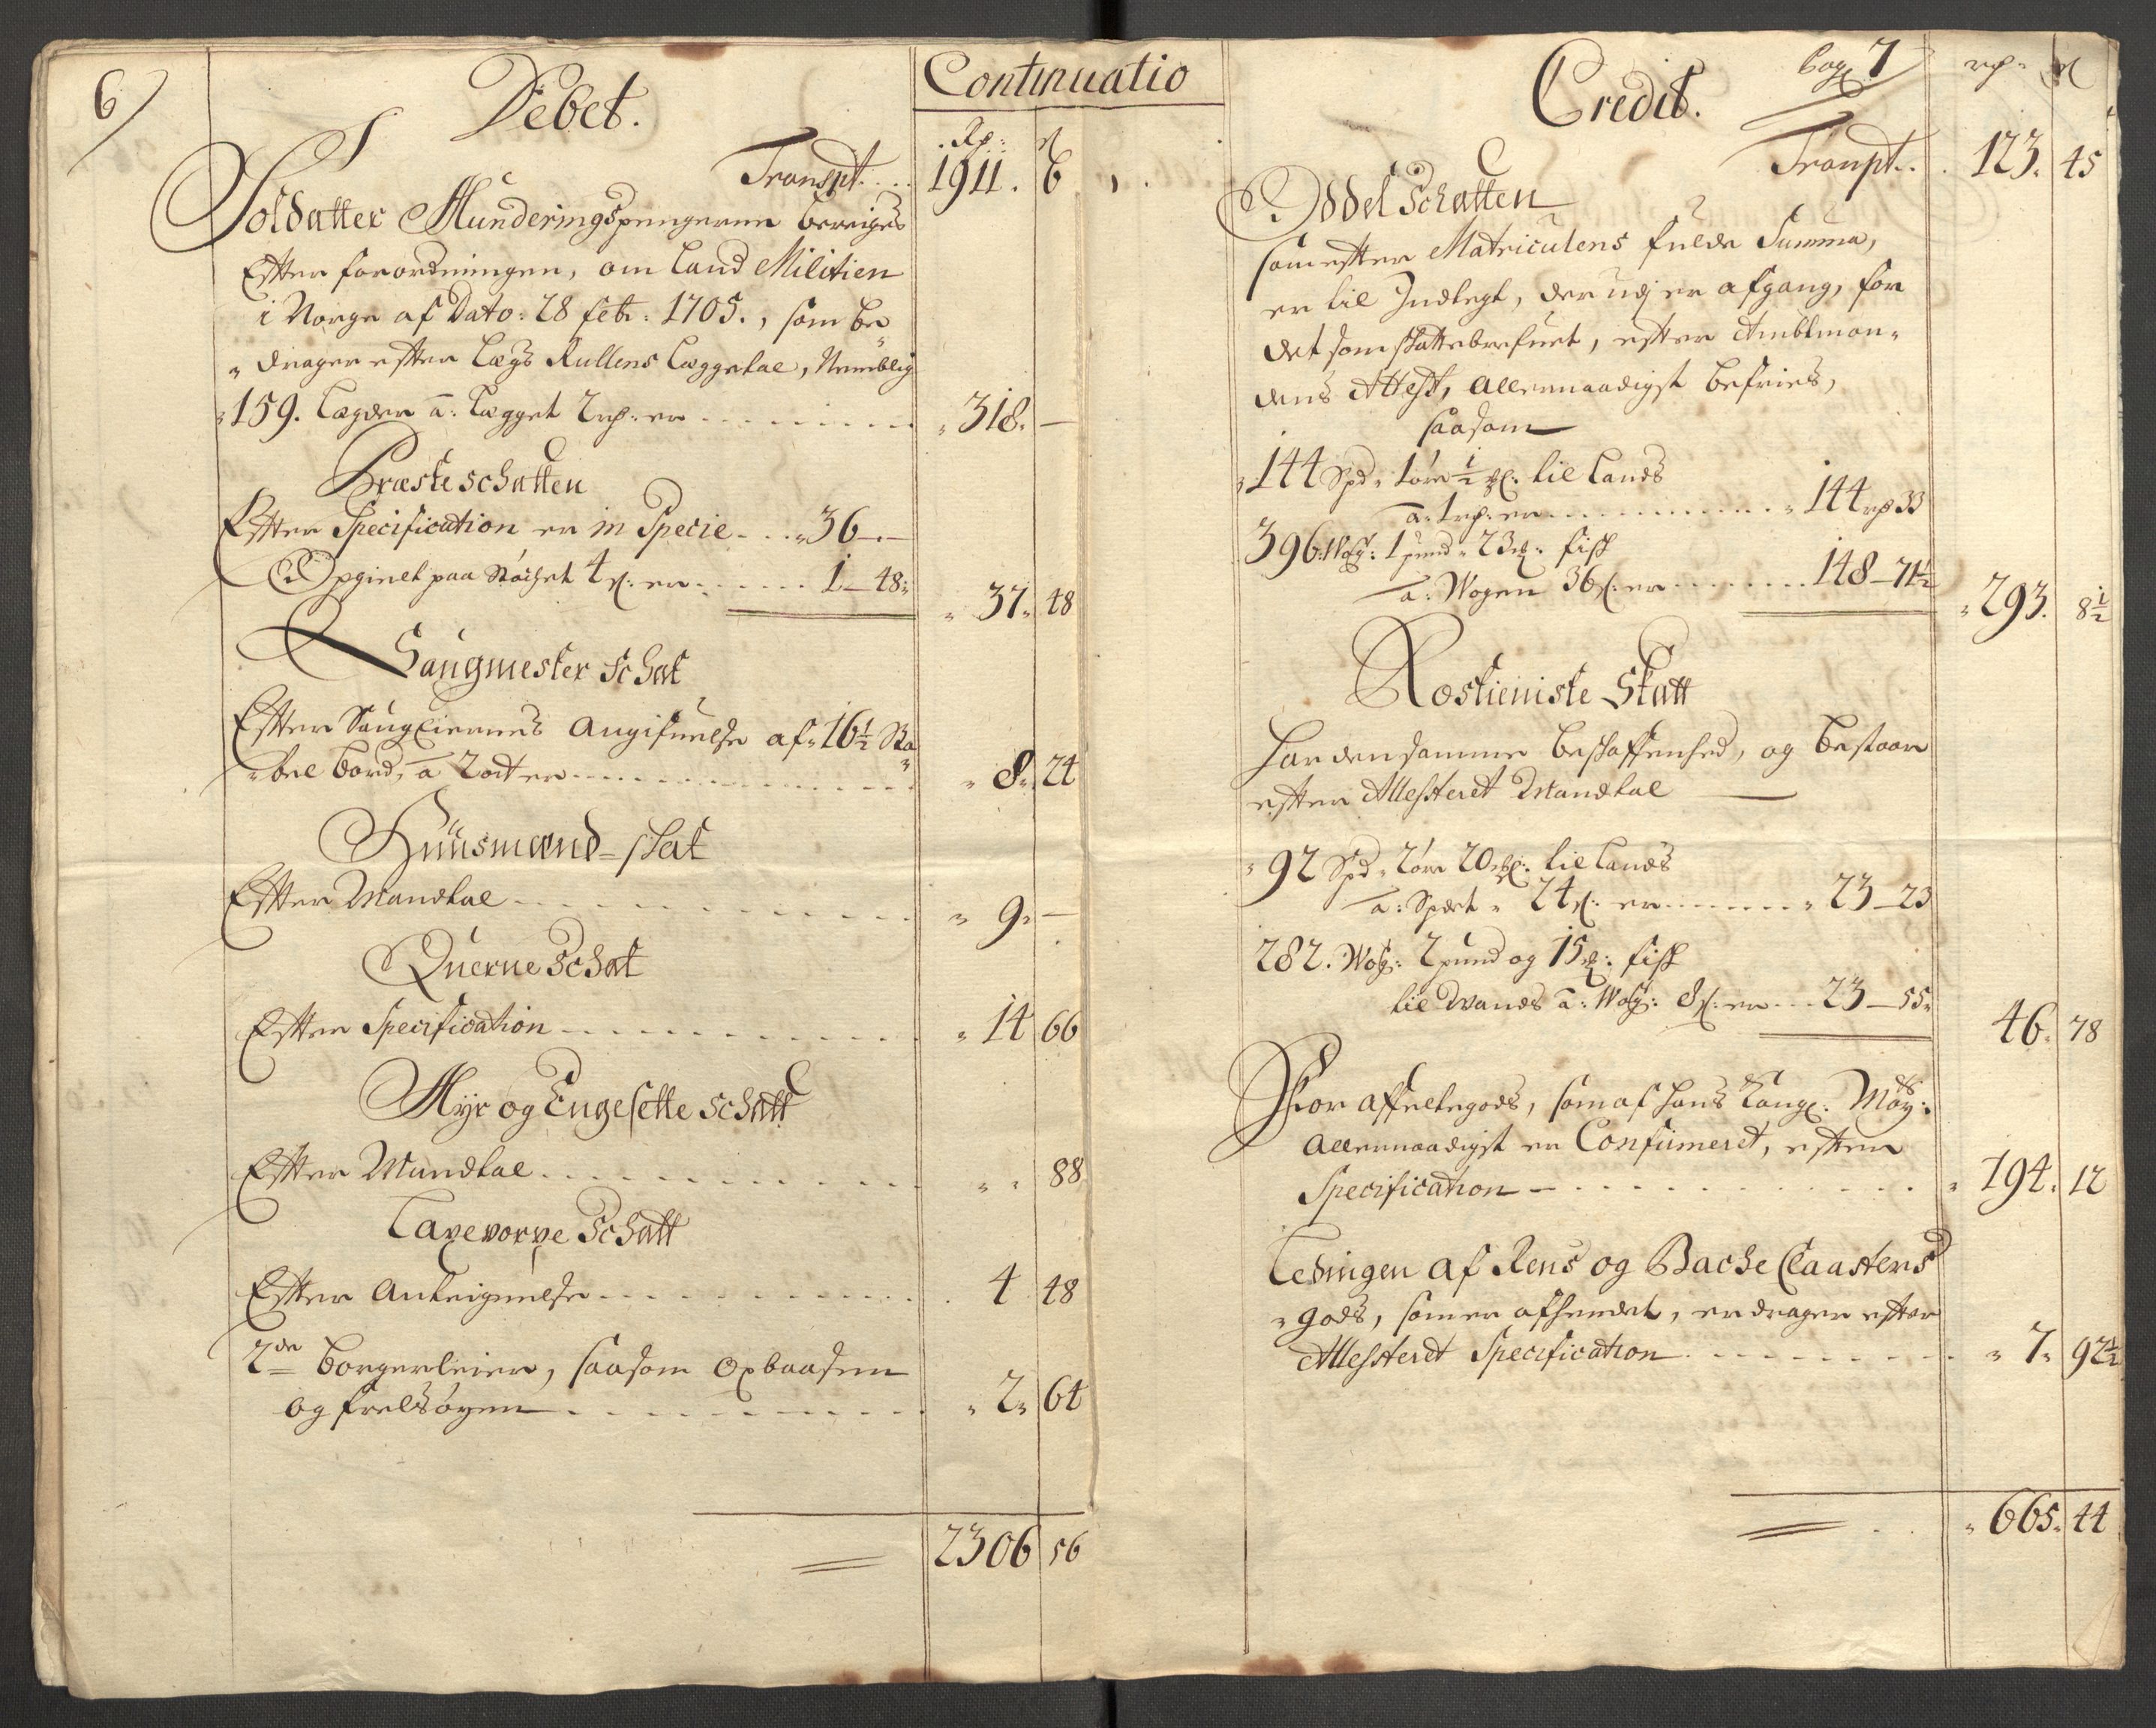 6
Debet.
Continuatio
Rd: ß
Transpt. . . . 1911. 6
Soldatter Munderingspengerne bereignes
Effter forordningen, om Land Militien
i Norge af Dato: 28 feb: 1705., som be„
„drager effter Lægs Rullens Læggetal, Nemblig
„159. Lægder â: Lægget 2 rd: er . . . . „318. —
Præste schatten
Effter Specification er in Specie . . . „36 — . —
Opginelt paa Stÿchet 4 ß: er . . . . 1 — 48„
„37„ 48
Saugmester schat
Effter Saugeiernes Angifuelse af „16½ Sta„
„bel bord, â 2 ort er . . . . „8„ 24
Huusmænd-skat
Effter Mandtal . . . . „9„ —
Querne Schat
Effter Specification . . . . „14 66
Myr og Engesette Schatt
Effter Mandtal . . . . „ „ 88
Laxevorpe Schatt
Effter Anteignelse . . . . 4 48
2de borgerleier, saasom Oxbaasen
og frelsøyen . . . . „2„ 64
2306 56
Credit.
Pag 7
rd„ ß
Tranpt. . . 123. 45
Oddel Schatten
som effter Matriculens fulde Summa,
er til Indtegt, der udj er afgang, for
det som skattebrefuet, effter Ambtman„
dens Attest, allernaadigst befries,
saasom
„144 Spd„ 1 øre ½ til Lands
â: 1 rd: er . . . . „144 rd 33
396. Wog: 1 pund „23 fisk
â: Wogen 36 ß: er . . . . 148 — 71½
„293. 8½
Rostieniste Skatt
har den samme beskaffenhed, og bestaar
effter Attesteret Mandtal —
„92 Spd„ 2 øre 20 til Lands
â: Spdet „24 ß: er . . . . „23 — 23
282. Wog: 2 pund og 15 fisk
til Wands â: Wog: 8 ß: er . . . 23 — 55„
46„ 78
For affeltegods, som af hans Kongl: May:ts
allernaadigst er Confirmeret, effter
Specification — . . . . „194. 12
Ledingen af Rens og Bache Claasters
„gods, som er afhendet, er drager effter
Attesteret Specification . . . . „7„ 92½
„665„ 44